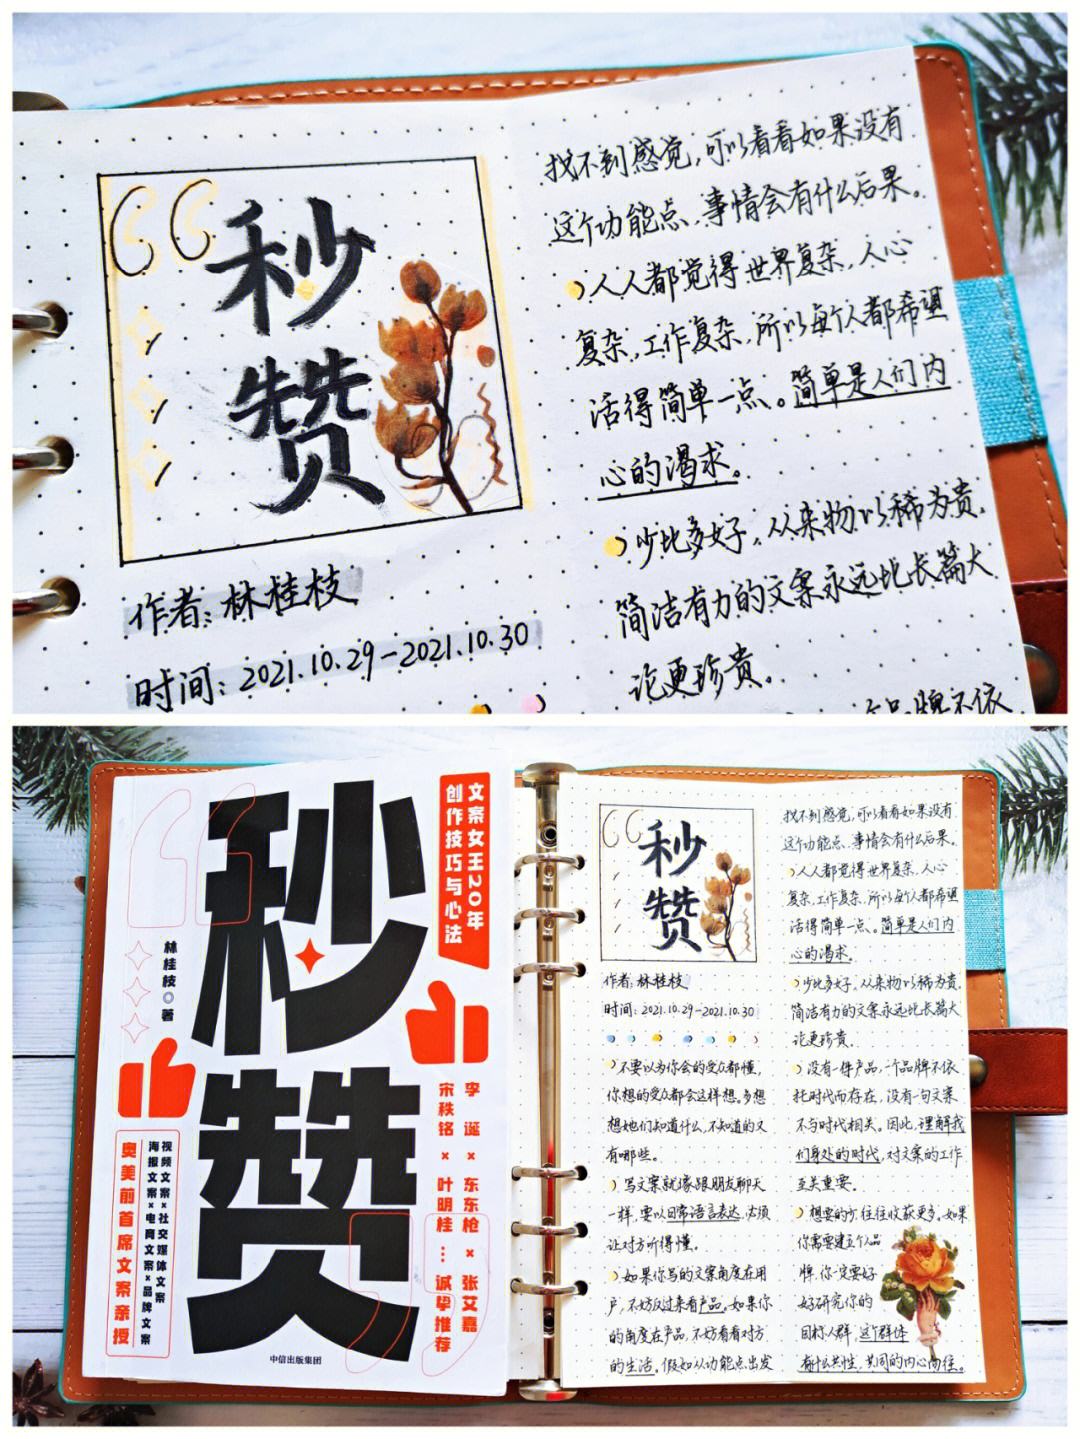 秒
赞
作者:林桂枝
时间:2021.10.29-2021.10.30
找不到感觉,可以看看如果没有
这个功能点、事情会有什么后果。
人人都觉得世界复杂,人心
复杂,工作复杂,所以每个人都希望
活得简单一点。简单是人们内
心的渴求。
少比多好。从来物以稀为贵,
简洁有力的文案永远比长篇大
论更珍贵。
个品牌不依
秒
赞
文案女王20年
创作技巧与心法
林桂枝◎著
李诞×东东枪×张艾嘉
宋秩铭×叶明桂…诚挚推荐
视频文案×社交媒体文案
海报文案×电商文案×品牌文案
奥美前首席文案亲授
中信出版集团
秒
赞
作者:林桂枝
时间:2021.10.29-2021.10.30
不要以为你会的受众都懂,
你想的受众都会这样想。多想
想她们知道什么,不知道的又
有哪些。
写文案就像跟朋友聊天
一样,要以日常语言表达,必须
让对方听得懂。
如果你写的文案角度在用
户,不妨反过来看产品。如果你
的角度在产品,不妨看看对方
的生活。假如从功能点出发
找不到感觉,可以看看如果没有
这个功能点、事情会有什么后果。
人人都觉得世界复杂,人心
复杂,工作复杂,所以每个人都希望
活得简单一点。简单是人们内
心的渴求。
少比多好。从来物以稀为贵,
简洁有力的文案永远比长篇大
论更珍贵。
没有一件产品,一个品牌不依
托时代而存在,没有一句文案
不与时代相关。因此,理解我
们身处的时代,对文案的工作
至关重要。
想要的少往往收获更多。如果
你需要建立个人品
牌,你一定要好
好研究你的
目标人群,这个群体
有什么共性,共同的内心向往。